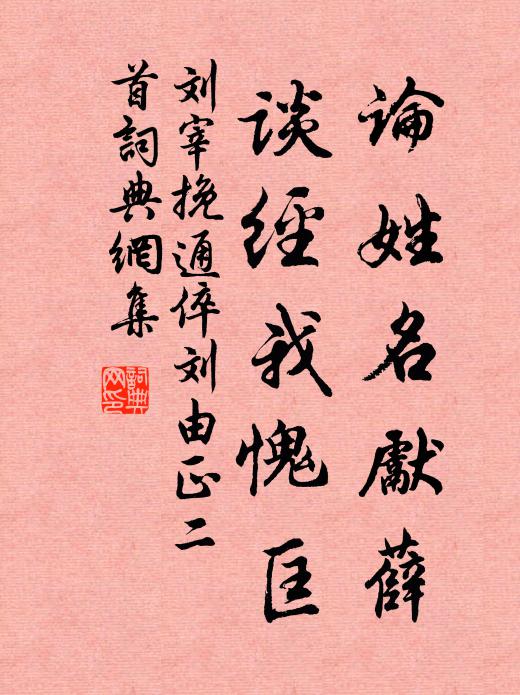 論姓名獻薛
談經我愧匡
刘宰挽通倅刘由正二
首詞典網集
詞典网印